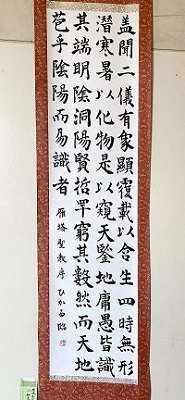 蓋聞二儀有象顯覆載以含生四時無形
潜寒暑以化物是以窺天鑒地庸愚皆識
其端明陰洞陽賢哲罕窮其數然而天地
苞乎陰陽而易識者
雁塔聖教序 ひかる臨